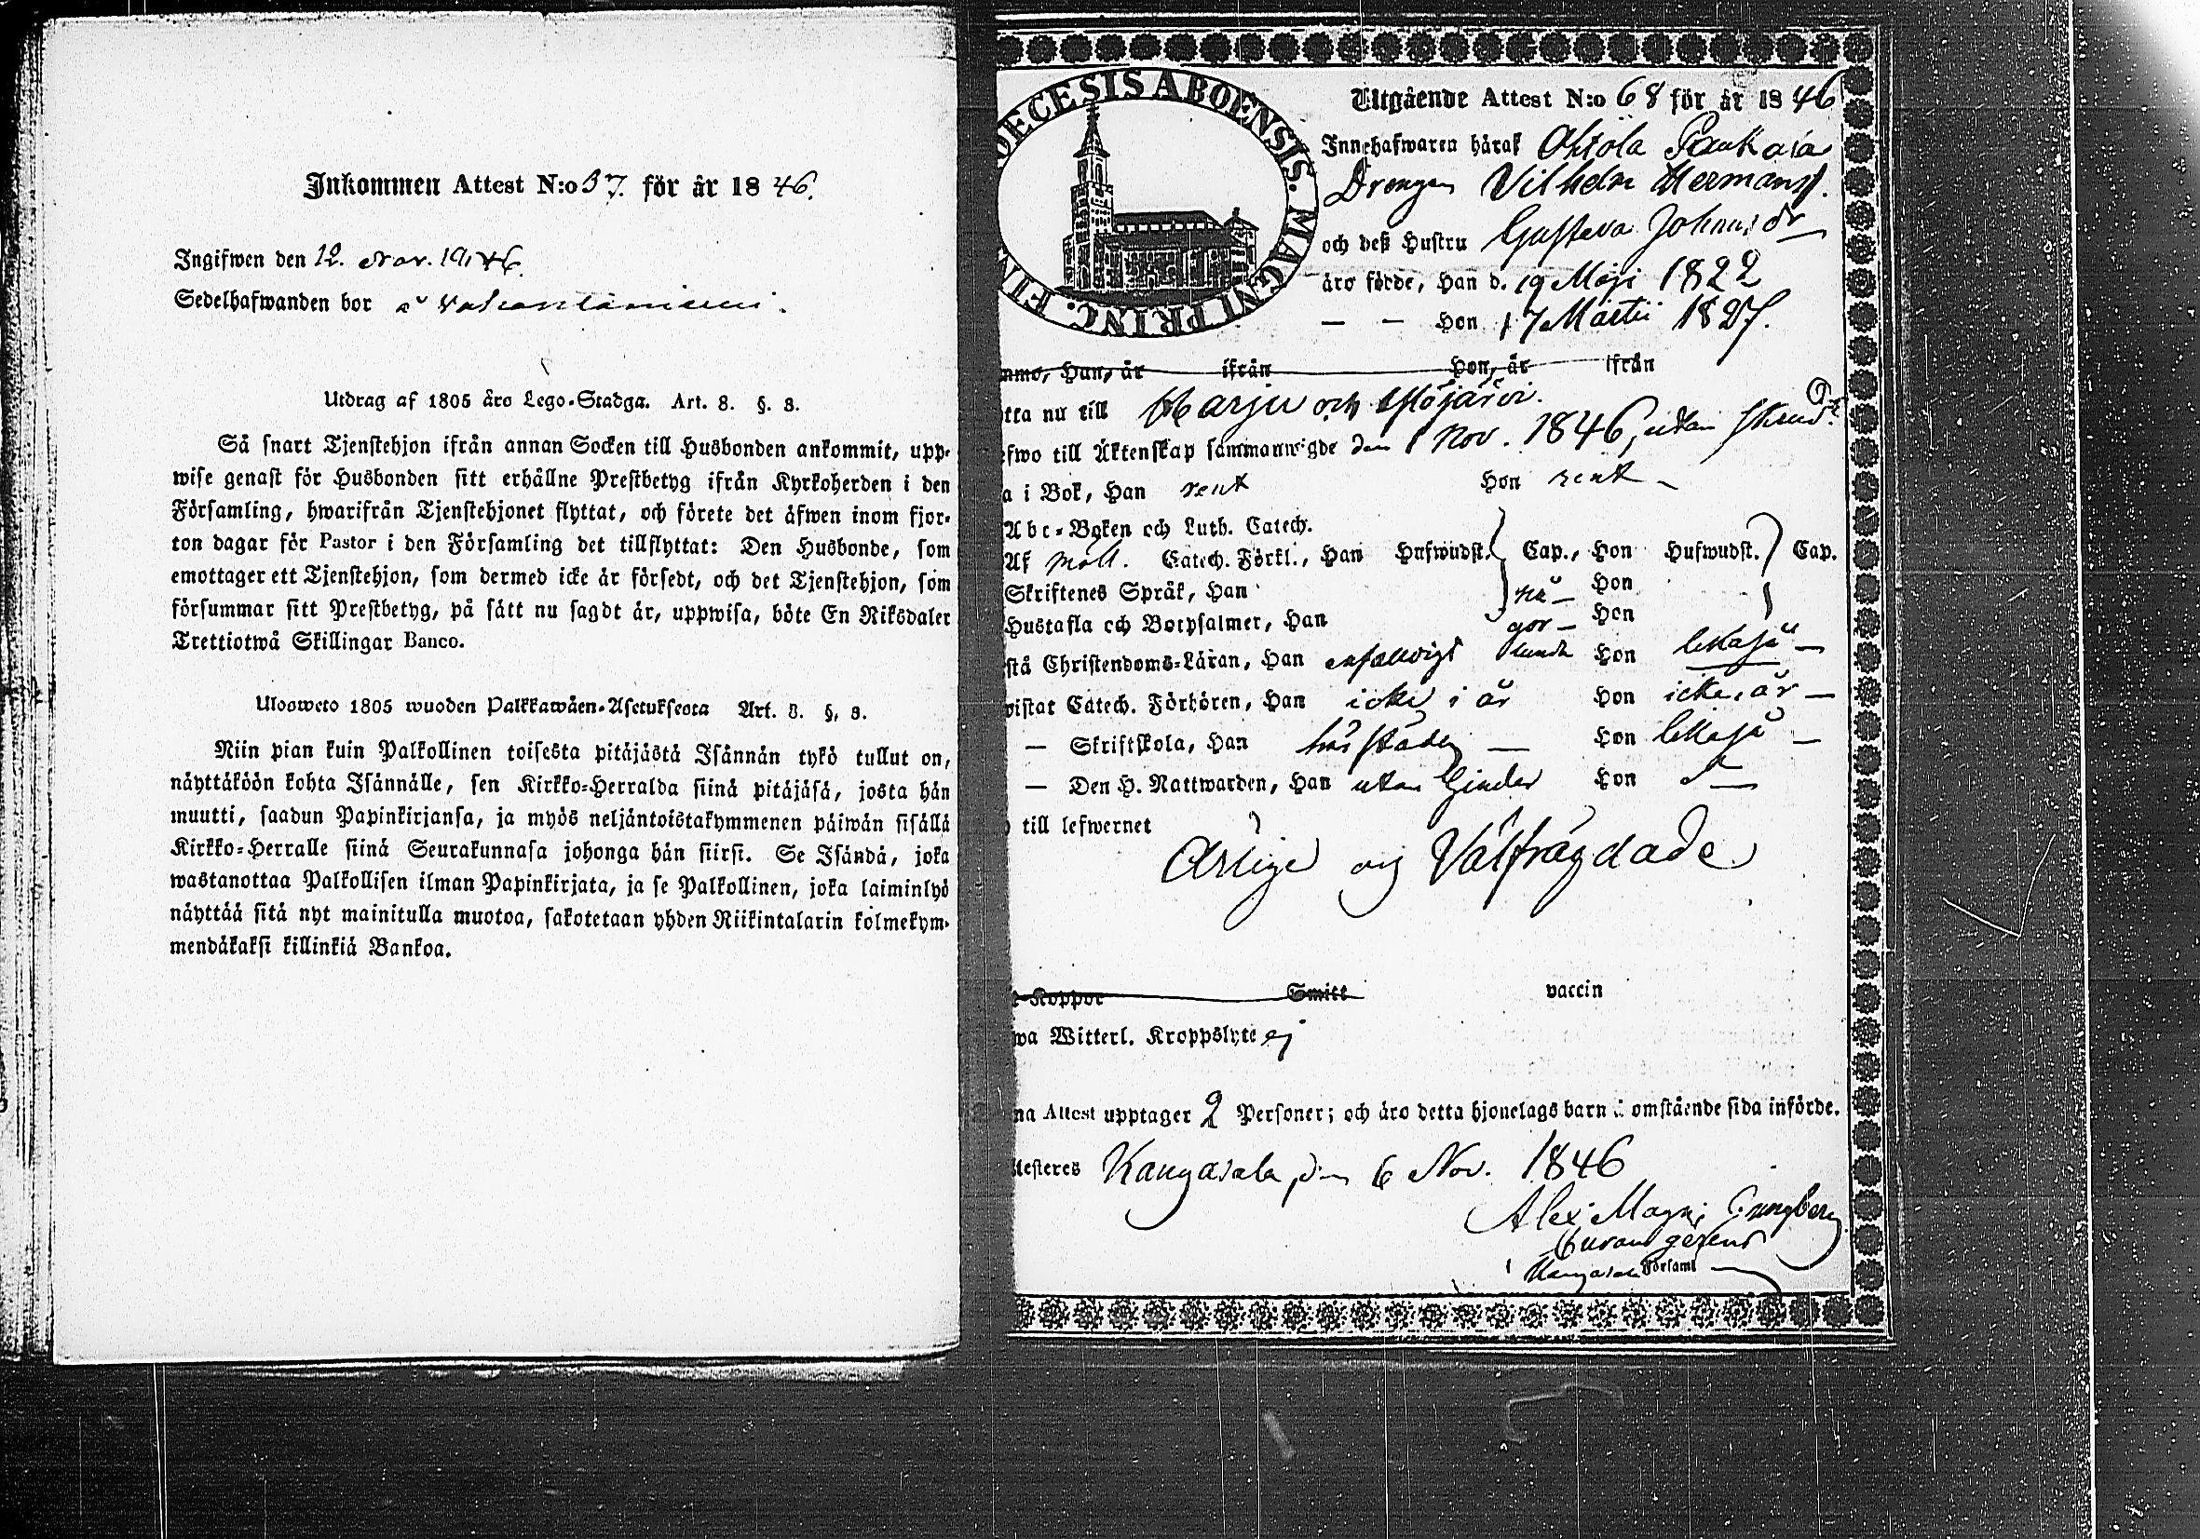 Inkommen Attest N:o 37. för år 1846.
Ingifwen den 12. Nov. 1846.
Sedelhafwanden bor å
Utdrag af 1805 års Lego-Stadga. Art. 8. §. 8.
Så snart Tjenstehjon ifrån annan Socken till Husbonden ankommit, upp-
wise genast för Husbonden sitt erhållne Prestbetyg ifrån Kyrkoherden i den
Församling, hwarifrån Tjenstehjonet flyttat, och förete det äfwen inom fjor-
ton dagar för Pastor i den Församling det tillflyttat: Den Husbonde, som
emottager ett Tjenstehjon, som dermed icke är försedt, och det Tjenstehjon, som
försummar sitt Prestbetyg, på sätt nu sagdt är, uppwisa, böte En Riksdaler
Trettiotwå Skillingar Banco.
Ulosweto 1805 wuoden Palkkawäen-Asetuksesta Art. 8. §. 8.
Niin pian kuin Palkollinen toisesta pitäjästä Isännän tykö tullut on,
näyttäköön kohta Isännälle, sen Kirkko-Herralda siinä pitäjäsä, josta hän
muutti, saadun Papinkirjansa, ja myös neljäntoistakymmenen päiwän sisällä
Kirkko-Herralle siinä Seurakunnasa johonga hän siirsi. Se Isändä, joka
wastanottaa Palkollisen ilman Papinkirjata, ja se Palkollinen, joka laiminlyö
näyttää sitä nyt mainitulla muotoa, sakotetaan yhden Riikintalarin kolmekym-
mendäkaksi killinkiä Bankoa.
OECESIS ABOENSIS. MAGNI PRINC. FIN
Utgående Attest N:o 68 för år 1846
Innehafwaren häraf Ohtola
Drengen Vilhelm Hermanss.
och deß Hustru Gustava Johansdr
äro födde, Han d. 19 Maji 1822
— — Hon 17 Martii 1827.
mmo, Han, år ifrån Hon, år ifrån
tta nu till Harju och Ylöjärvi.
efwo till Äktenskap sammanwigde den 1 Nov. 1846, utan
a i Bok, Han rent Hon rent
Abc-Boken och Luth. Catech.
Af Moll. Catech. Förkl., Han Hufwudst. Cap., Hon Hufwudst. Cap.
Skriftenes Språk, Han nå- Hon
Hustafla och Botpsalmer, Han gor- Hon
stå Christendoms-Läran, Han enfaldigt lunda Hon likaså
wistat Catech. Förhören, Han icke i år Hon icke i år
— Skriftskola, Han härstädes Hon likaså
— Den H. Nattwarden, Han utan hinder Hon
till lefwernet
Ärlige och Välfrägdade
t-Koppor Smitt vaccin
wa Witterl. Kroppslyte ej
na Attest upptager 2 Personer; och äro detta hjonelags barn å omstående sida införde.
Kangasala, den 6 Nov. 1846
Alex. Magn. Ljungberg
Curam gerens
i Kangasala Församl